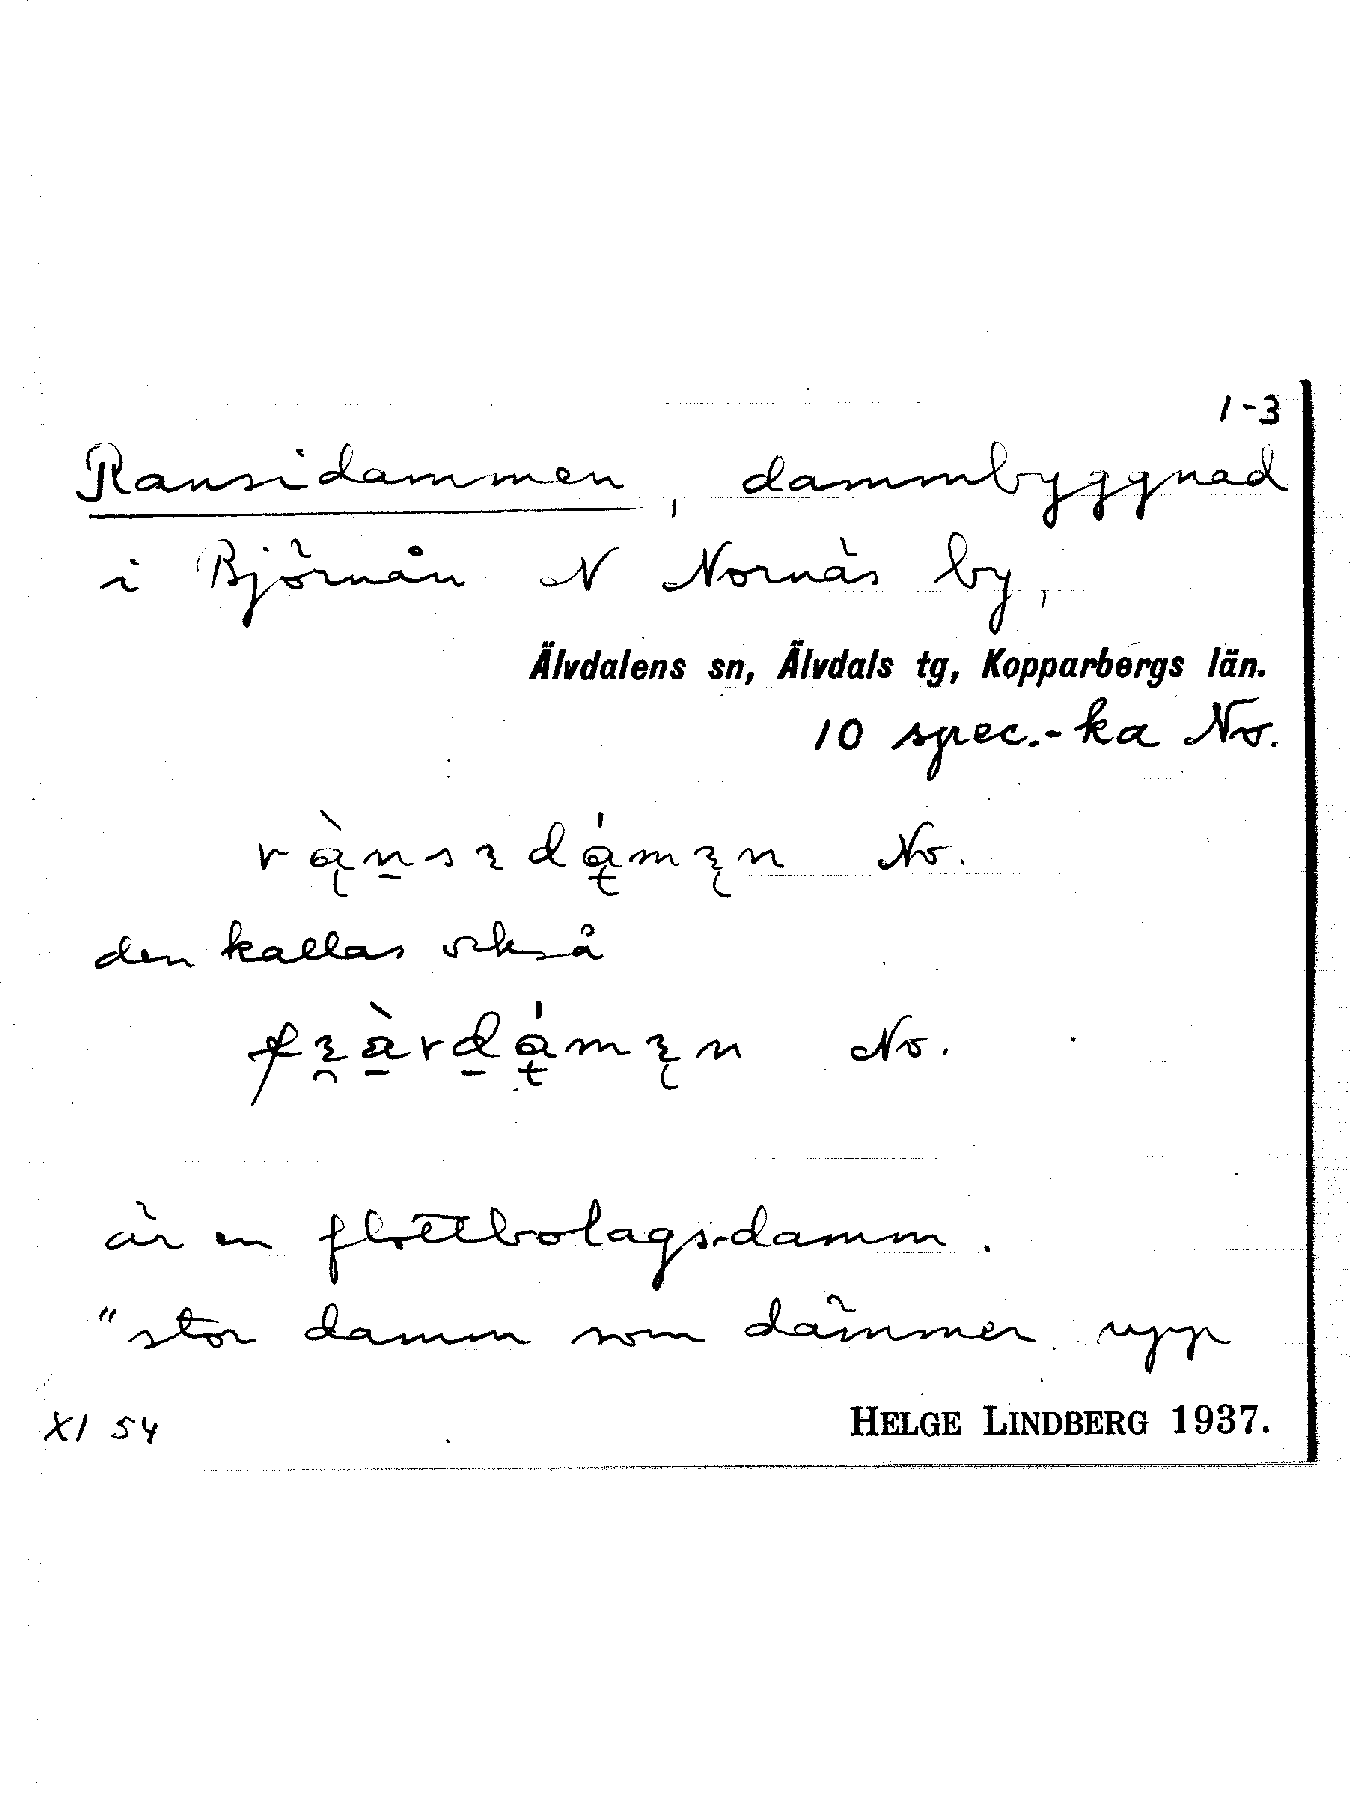 1-3
Ransidammen, dammbyggnad
i Björnån N Nornäs by,
Älvdalens sn, Älvdals tg, Kopparbergs län.
10 spec.-ka No.
No.
den kallas också
No.
är en flottbolagsdamm.
"stor damm som dämmer upp
XI 54
HELGE LINDBERG 1937.